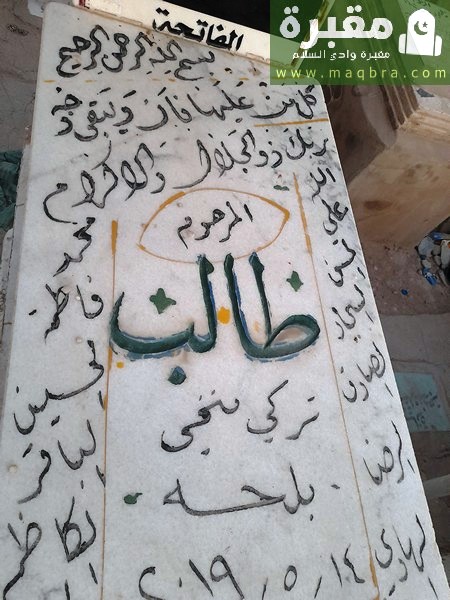 مقبرة
مقبرة وادي السلام
www.maqbra.com
الفاتحة
بسم الله الرحمن الرحيم
كل من عليها فان ويبقى وجه
ربك ذو الجلال والاكرام
المرحوم
طالب
تركي
بلحه
٢٠١٩/٥/١٤
الله
علي
حسن
سجاد
صادق
الرضا
الهادي
محمد
فاطمة
حسين
الباقر
الكاظم